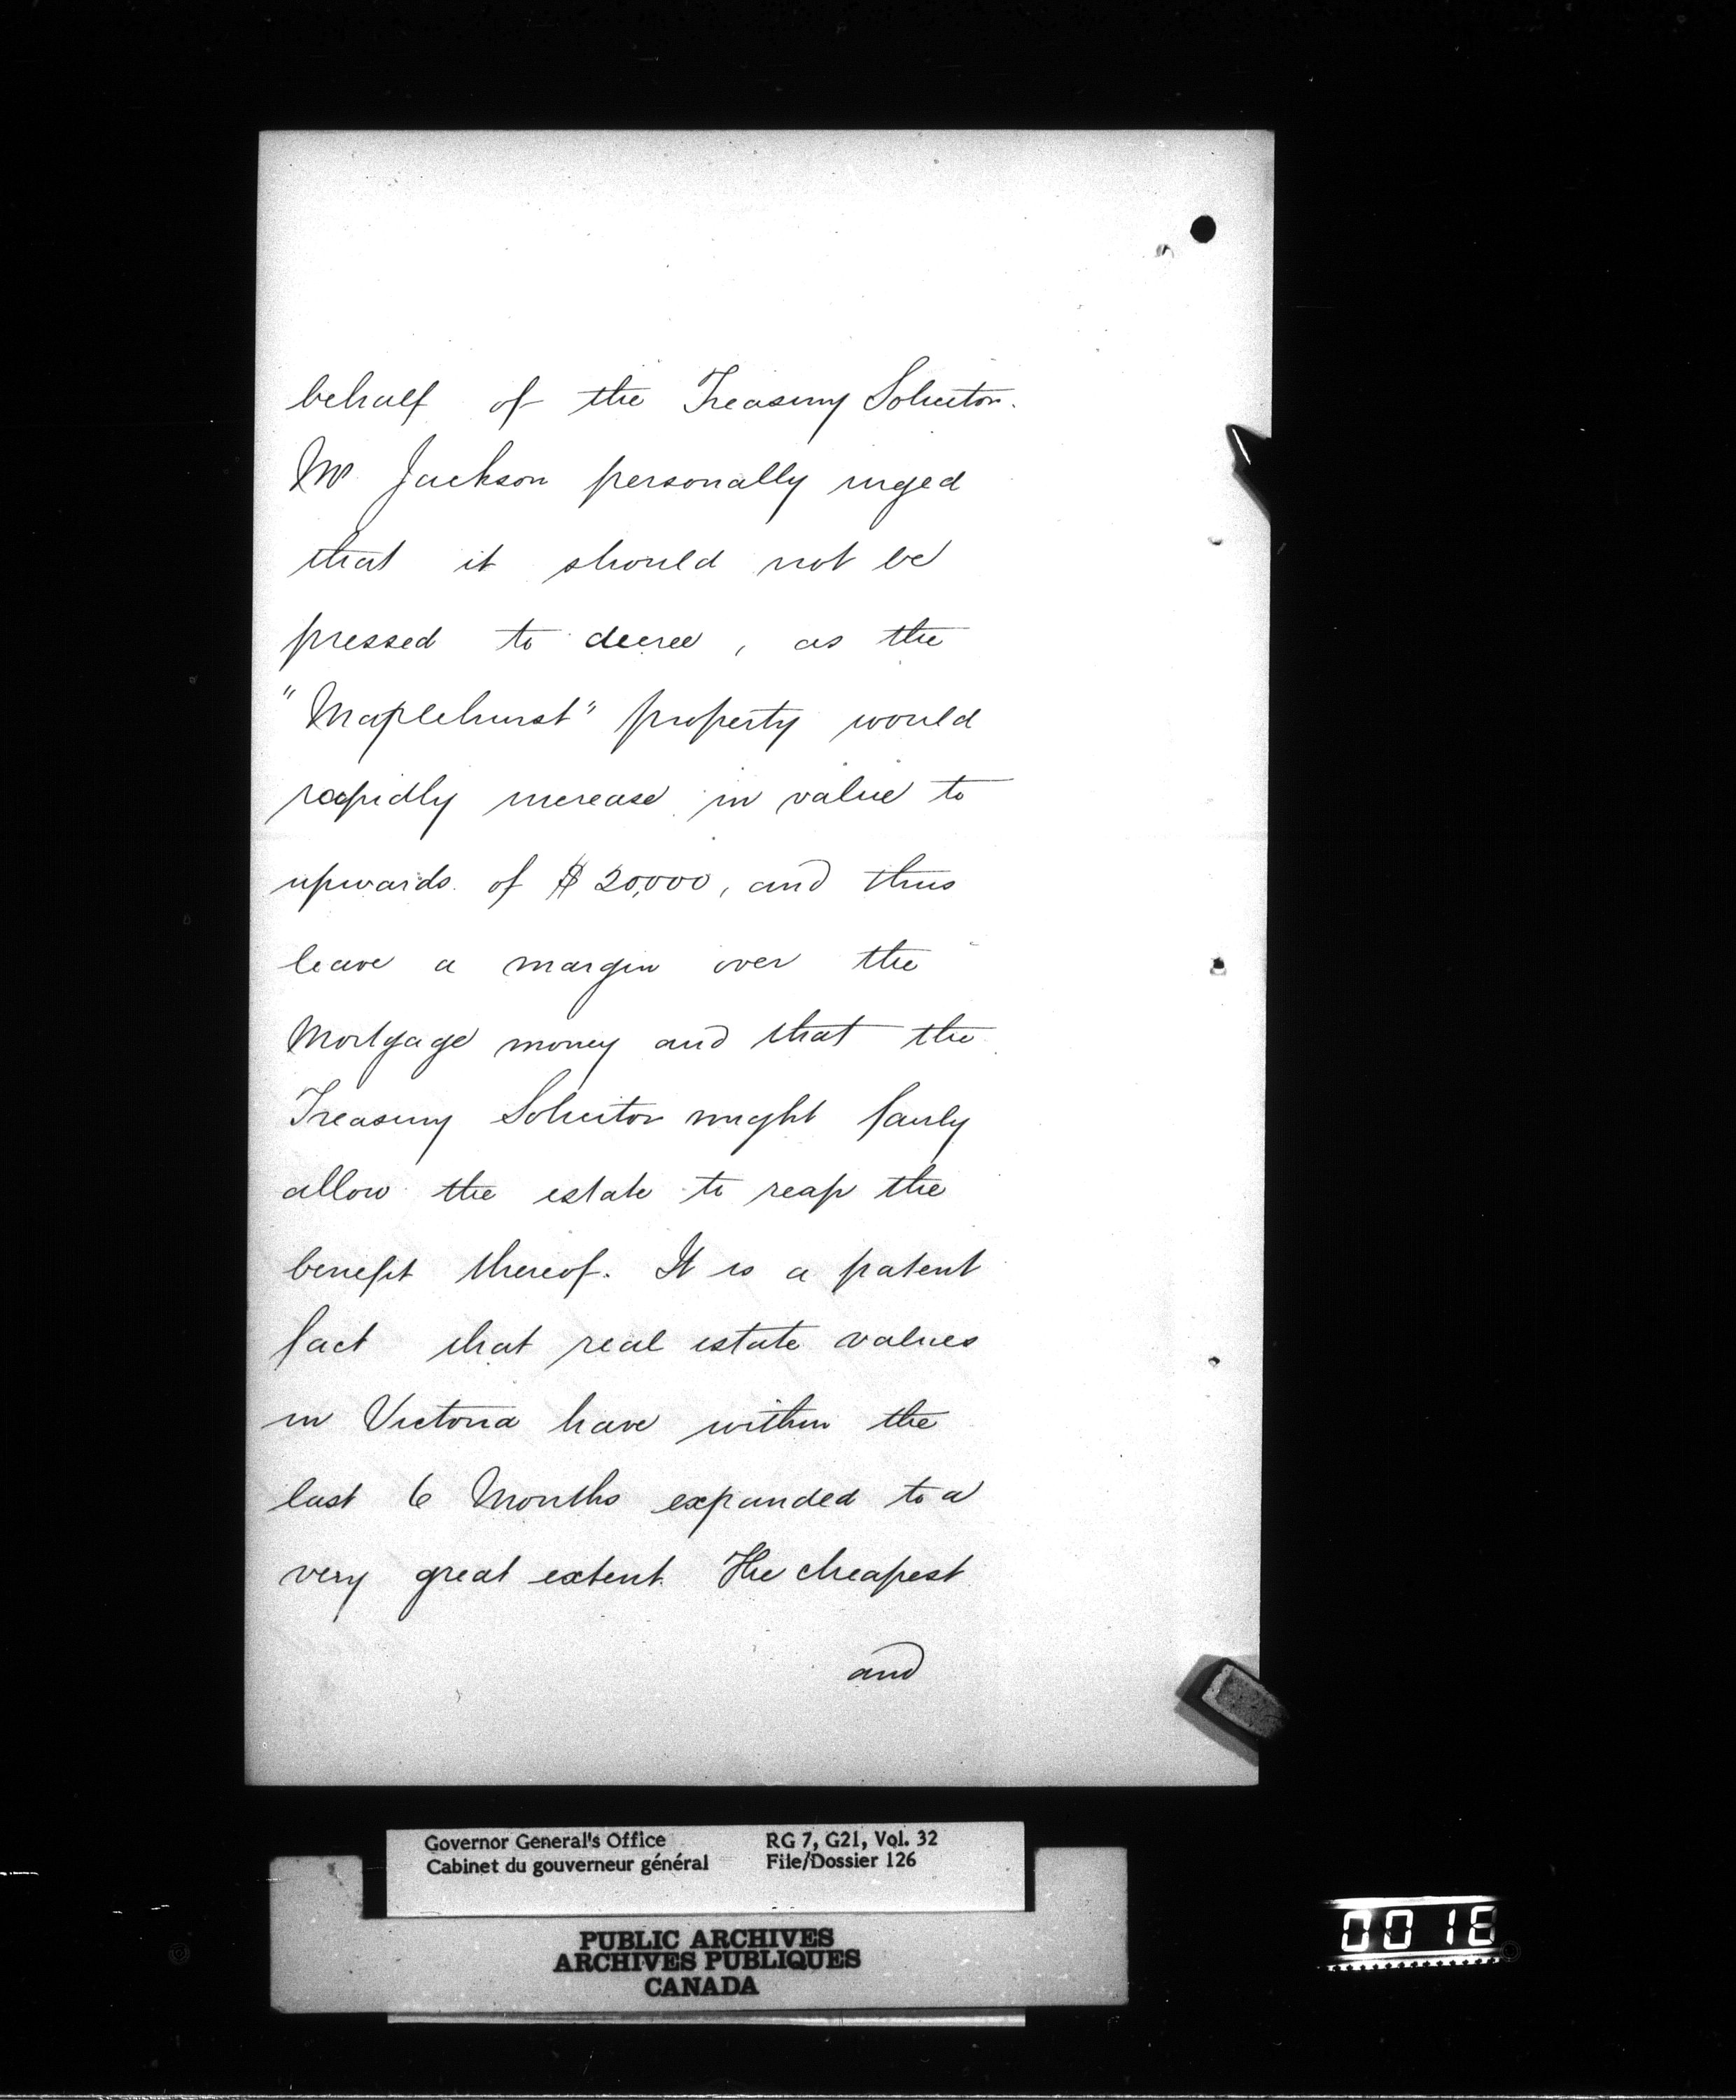 behalf of the Treasury Solicitor.
Mr Jackson personally urged
that it should not be
pressed to decree, as the
"Maplehurst" property would
rapidly increase in value to
upwards of $20,000, and thus
leave a margin over the
Mortgage money and that the
Treasury Solicitor might fairly
allow the estate to reap the
benefit thereof. It is a patent
fact that real estate values
in Victoria have within the
last 6 Months expanded to a
very great extent. The cheapest
and
Governor General's Office RG 7, G21, Vol. 32
Cabinet du gouverneur général File/Dossier 126
PUBLIC ARCHIVES
ARCHIVES PUBLIQUES
CANADA